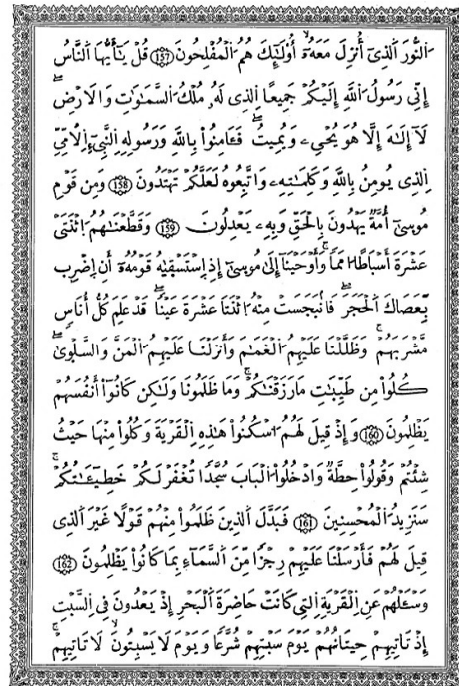 اَ۬لنُّورَ اَ۬لذِےٓ أُنزِلَ مَعَهُۥٓ أُوْلَٰٓئِكَ هُمُ اُ۬لْمُفْلِحُونَ 157 قُلْ يَٰٓأَيُّهَا اَ۬لنَّاسُ
إِنِّے رَسُولُ اُ۬للَّهِ إِلَيْكُمْ جَمِيعاً اِ۬لذِے لَهُۥ مُلْكُ اُ۬لسَّمَٰوَٰتِ وَالَارْضِۖ
لَآ إِلَٰهَ إِلَّا هُوَ يُحْيِۦ وَيُمِيتُۖ فَـَٔامِنُواْ بِاللَّهِ وَرَسُولِهِ اِ۬لنَّبِےٓءِ اِ۬لُامِّيِّ
اِ۬لذِے يُومِنُ بِاللَّهِ وَكَلِمَٰتِهِۦ وَاتَّبِعُوهُ لَعَلَّكُمْ تَهْتَدُونَ 158 وَمِن قَوْمِ
مُوسَىٰٓ أُمَّةٌ يَهْدُونَ بِالْحَقِّ وَبِهِۦ يَعْدِلُونَ 159 وَقَطَّعْنَٰهُمُ اُ۪ثْنَتَےْ
عَشْرَةَ أَسْبَاطاً امَماًۖ وَأَوْحَيْنَآ إِلَىٰ مُوسَىٰٓ إِذِ اِ۪سْتَسْق۪يٰهُ قَوْمُهُۥٓ أَنِ اِ۪ضْرِب
بِّعَصَاكَ اَ۬لْحَجَرَۖ فَانۢبَجَسَتْ مِنْهُ اُ۪ثْنَتَا عَشْرَةَ عَيْناًۖ قَدْ عَلِمَ كُلُّ أُنَاسٍ
مَّشْرَبَهُمْۖ وَظَلَّلْنَا عَلَيْهِمُ اُ۬لْغَمَٰمَ وَأَنزَلْنَا عَلَيْهِمُ اُ۬لْمَنَّ وَالسَّلْو۪يٰۖ
كُلُواْ مِن طَيِّبَٰتِ مَا رَزَقْنَٰكُمْۖ وَمَا ظَلَمُونَا وَلَٰكِن كَانُوٓاْ أَنفُسَهُمْ
يَظْلِمُونَ 160 وَإِذْ قِيلَ لَهُمُ اُ۟سْكُنُواْ هَٰذِهِ اِ۬لْقَرْيَةَ وَكُلُواْ مِنْهَا حَيْثُ
شِئْتُمْ وَقُولُواْ حِطَّةٌ وَادْخُلُواْ اُ۬لْبَابَ سُجَّداً تُغْفَرْ لَكُمْ خَطِيٓـَٰٔتُكُمْۖ
سَنَزِيدُ اُ۬لْمُحْسِنِينَ 161 فَبَدَّلَ اَ۬لذِينَ ظَلَمُواْ مِنْهُمْ قَوْلاً غَيْرَ اَ۬لذِے
قِيلَ لَهُمْ فَأَرْسَلْنَا عَلَيْهِمْ رِجْزاً مِّنَ اَ۬لسَّمَآءِ بِمَا كَانُواْ يَظْلِمُونَ 162
وَسْـَٔلْهُمْ عَنِ اِ۬لْقَرْيَةِ اِ۬لتِے كَانَتْ حَاضِرَةَ اَ۬لْبَحْرِ إِذْ يَعْدُونَ فِے اِ۬لسَّبْتِ
إِذْ تَاتِيهِمْ حِيتَانُهُمْ يَوْمَ سَبْتِهِمْ شُرَّعاً وَيَوْمَ لَا يَسْبِتُونَ لَا تَاتِيهِمْۖ